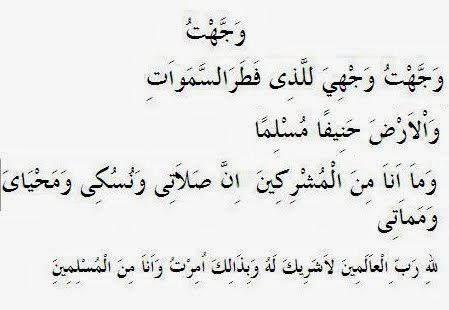 وَجَّهْتُ
وَجَّهْتُ وَجْهِيَ للَّذِى فَطَرَالسَّمَوَاتِ
وَاْلاَرْضَ حَنِيفًا مُسْلِمًا
وَمَا اَنَا مِنَ الْمُشْرِكِينَ اِنَّ صَلاَتِى وَنُسُكِى وَمَحْيَاىَ
وَمَمَاتِى
للهِ رَبِّ الْعَالَمِينَ لاَشَرِيكَ لَهُ وَبِذَالِكَ اُمِرْتُ وَاَنَا مِنَ الْمُسْلِمِينَ